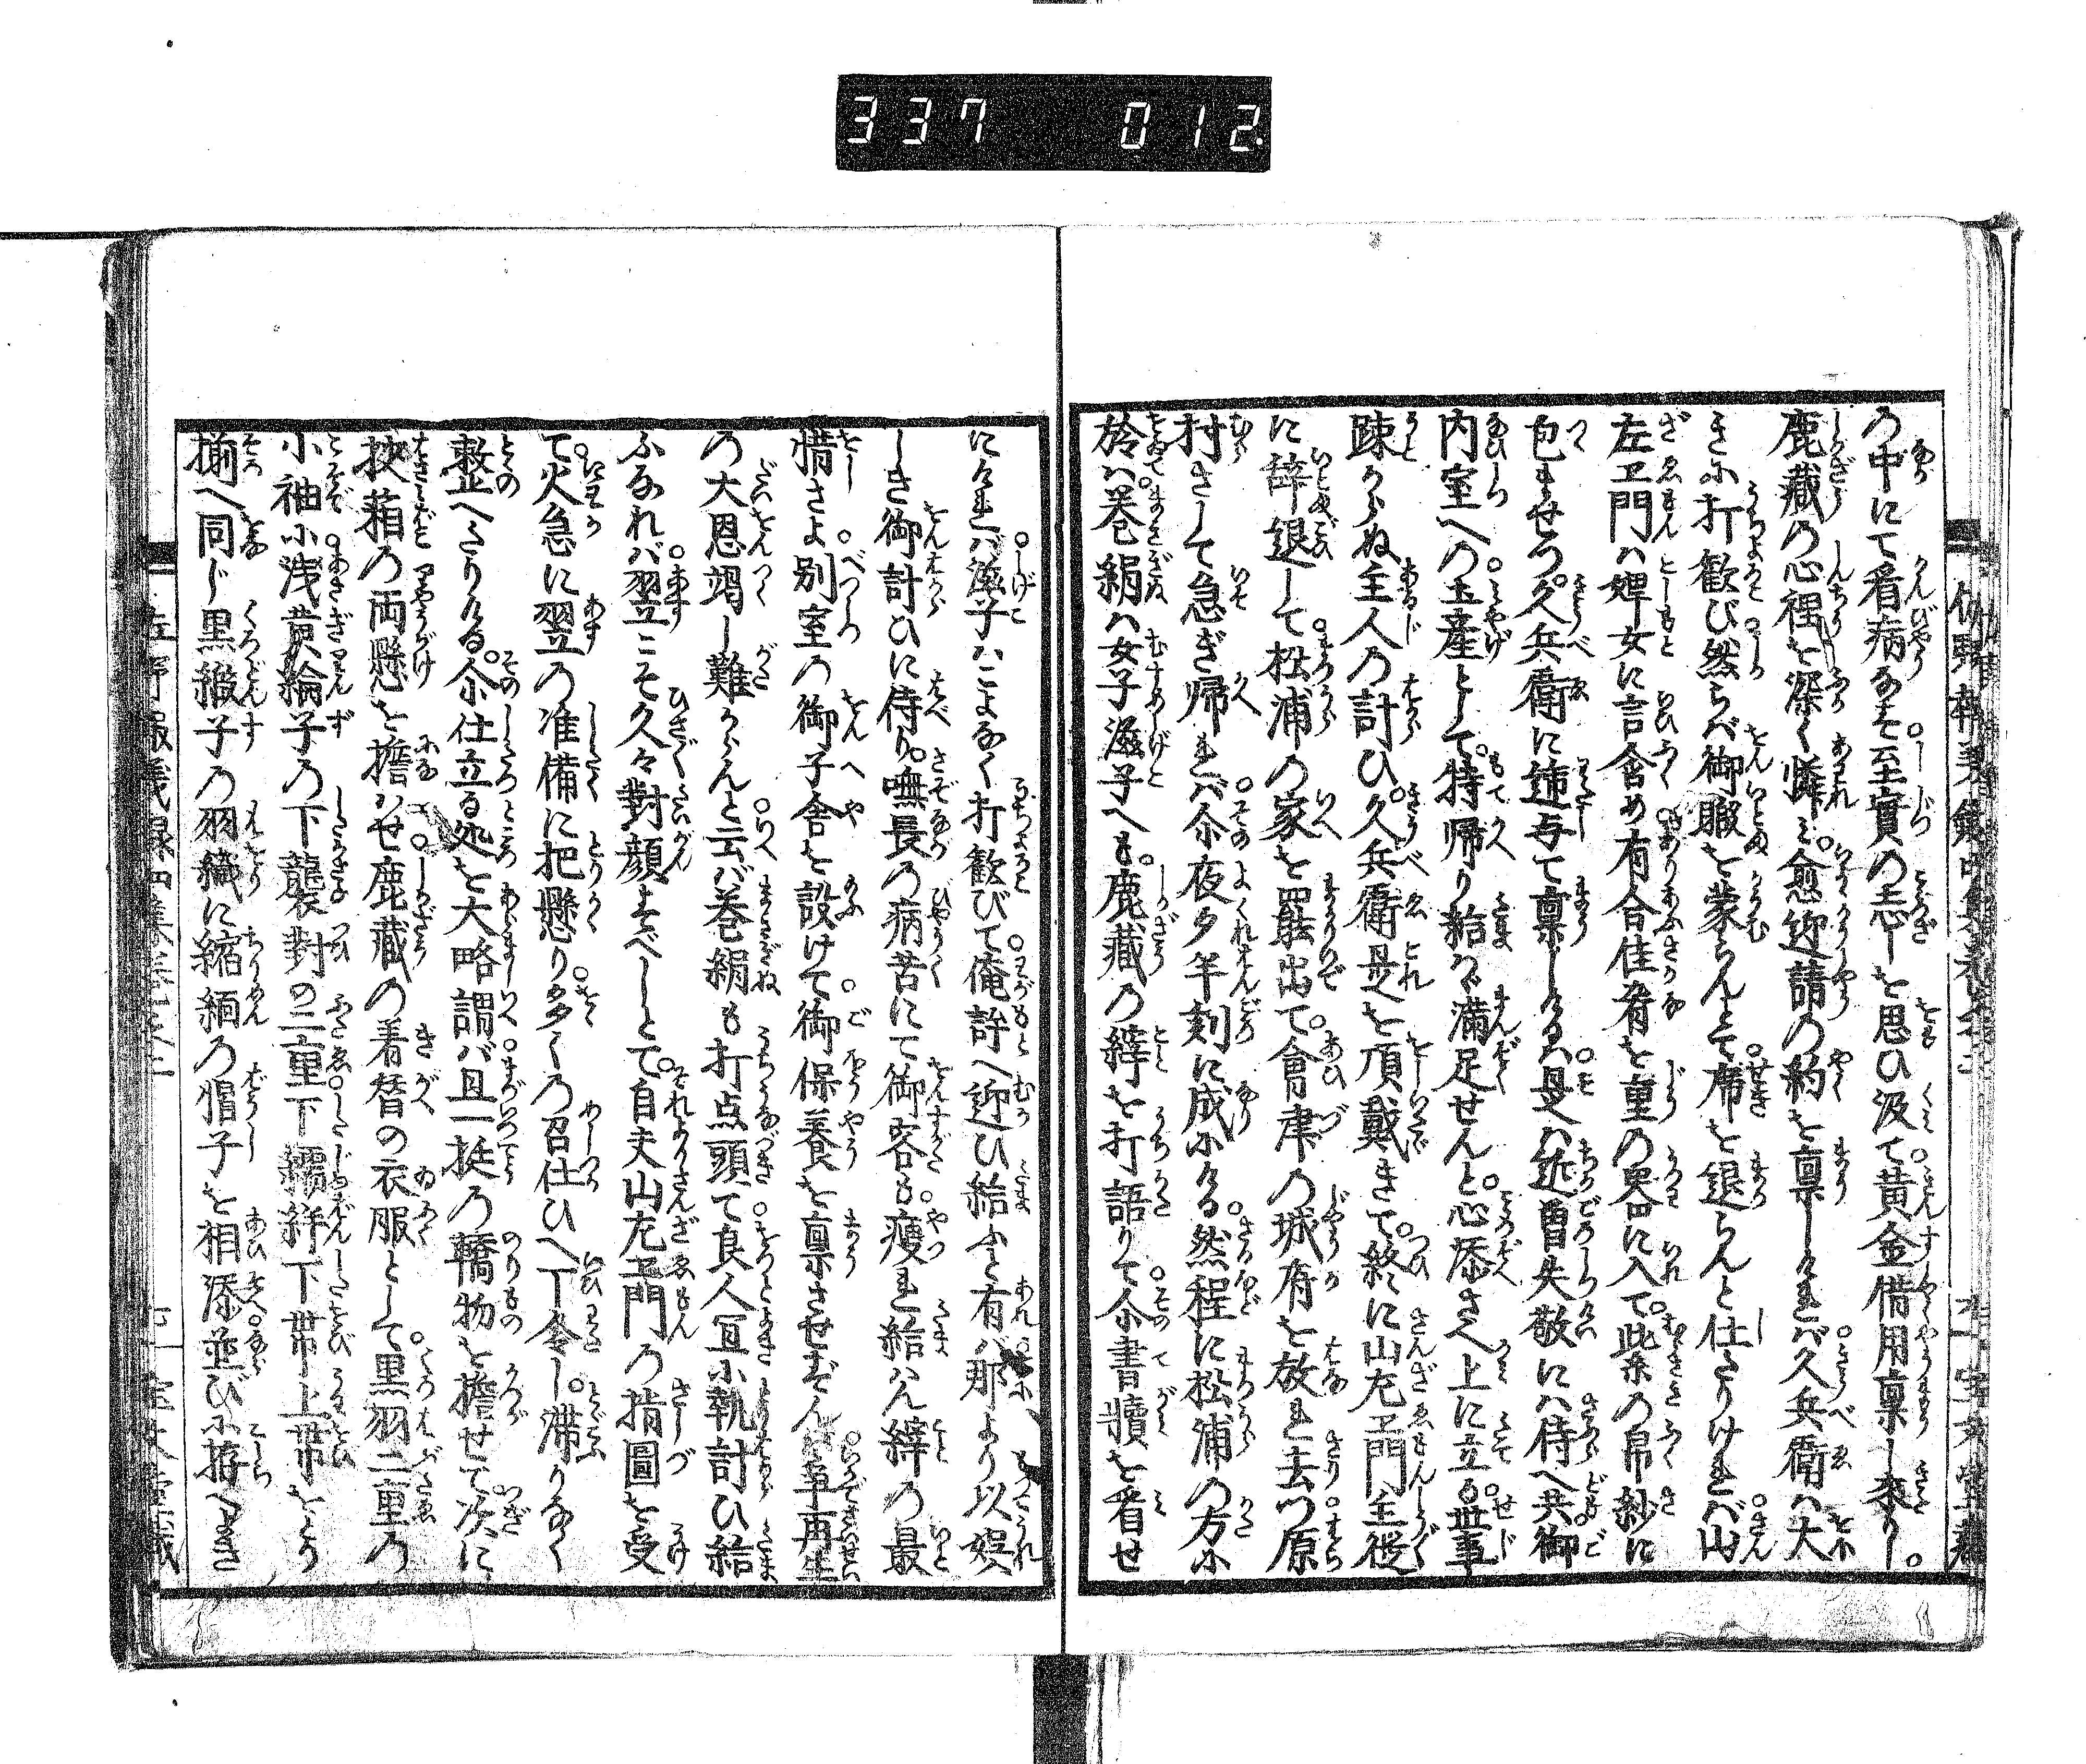 337 012
の中にて看病なせ至實の志しを思ひ汲て黄金借用稟し來りし。
鹿藏の心裡を深く憐ミ愈迎請の約を稟しけれバ久兵衛ハ大
きに打歓び然らバ御暇を蒙らんとて席を退らんと仕たりけれバ山
左エ門ハ婢女に言含め有合佳肴を重の器に入て此条の帛紗に
包ませつ久兵衛に逓与て稟しけるハ是ハ近曽失敬にハ侍へ共御
内室への土産として特帰り給ハヾ満足せんと心添さへ上に立る世事
疎からぬ主人の計ひ久兵衛是を頂戴きて終に山左エ門主從
に辞退して松浦の家を罷出て會津の城府を放れ去つ原
村さして急ぎ帰れバ尒夜夕半刻に成にける然程に松浦の方に
於ハ巻絹ハ女子滋子へも鹿藏の繹を打語りて尒書牘を看せ
にけれバ滋子ハこよなく打歓びて俺許へ迎ひ給ふと有バ那より以娯
しき御計ひに侍り嘸長の病苦にて御容も痩れ給ハん繹の最
惜さよ別室の御子舎を設けて御保養を稟させなバ再生
の大恩竭し難からんと云バ巻絹も打点頭て良人宜に執計ひ給
ふなれバ翌こそ久々對顔すべしとて自夫山左エ門の指圖を受
て火急に翌の准備に把懸り多くの召仕ひへ下令し滞りなく
整へたりける尒仕立る処を大略謂バ且一挺の轎物を擔せて次に
挾箱の両懸を擔ハせ鹿藏の着替の衣服として黒羽二重の
小袖小浅黄綸子の下襲對の二重下襦袢下帯上帯をとり
揃へ同じ黒緞子の羽織に縮緬の帽子を相添並びに拵へ